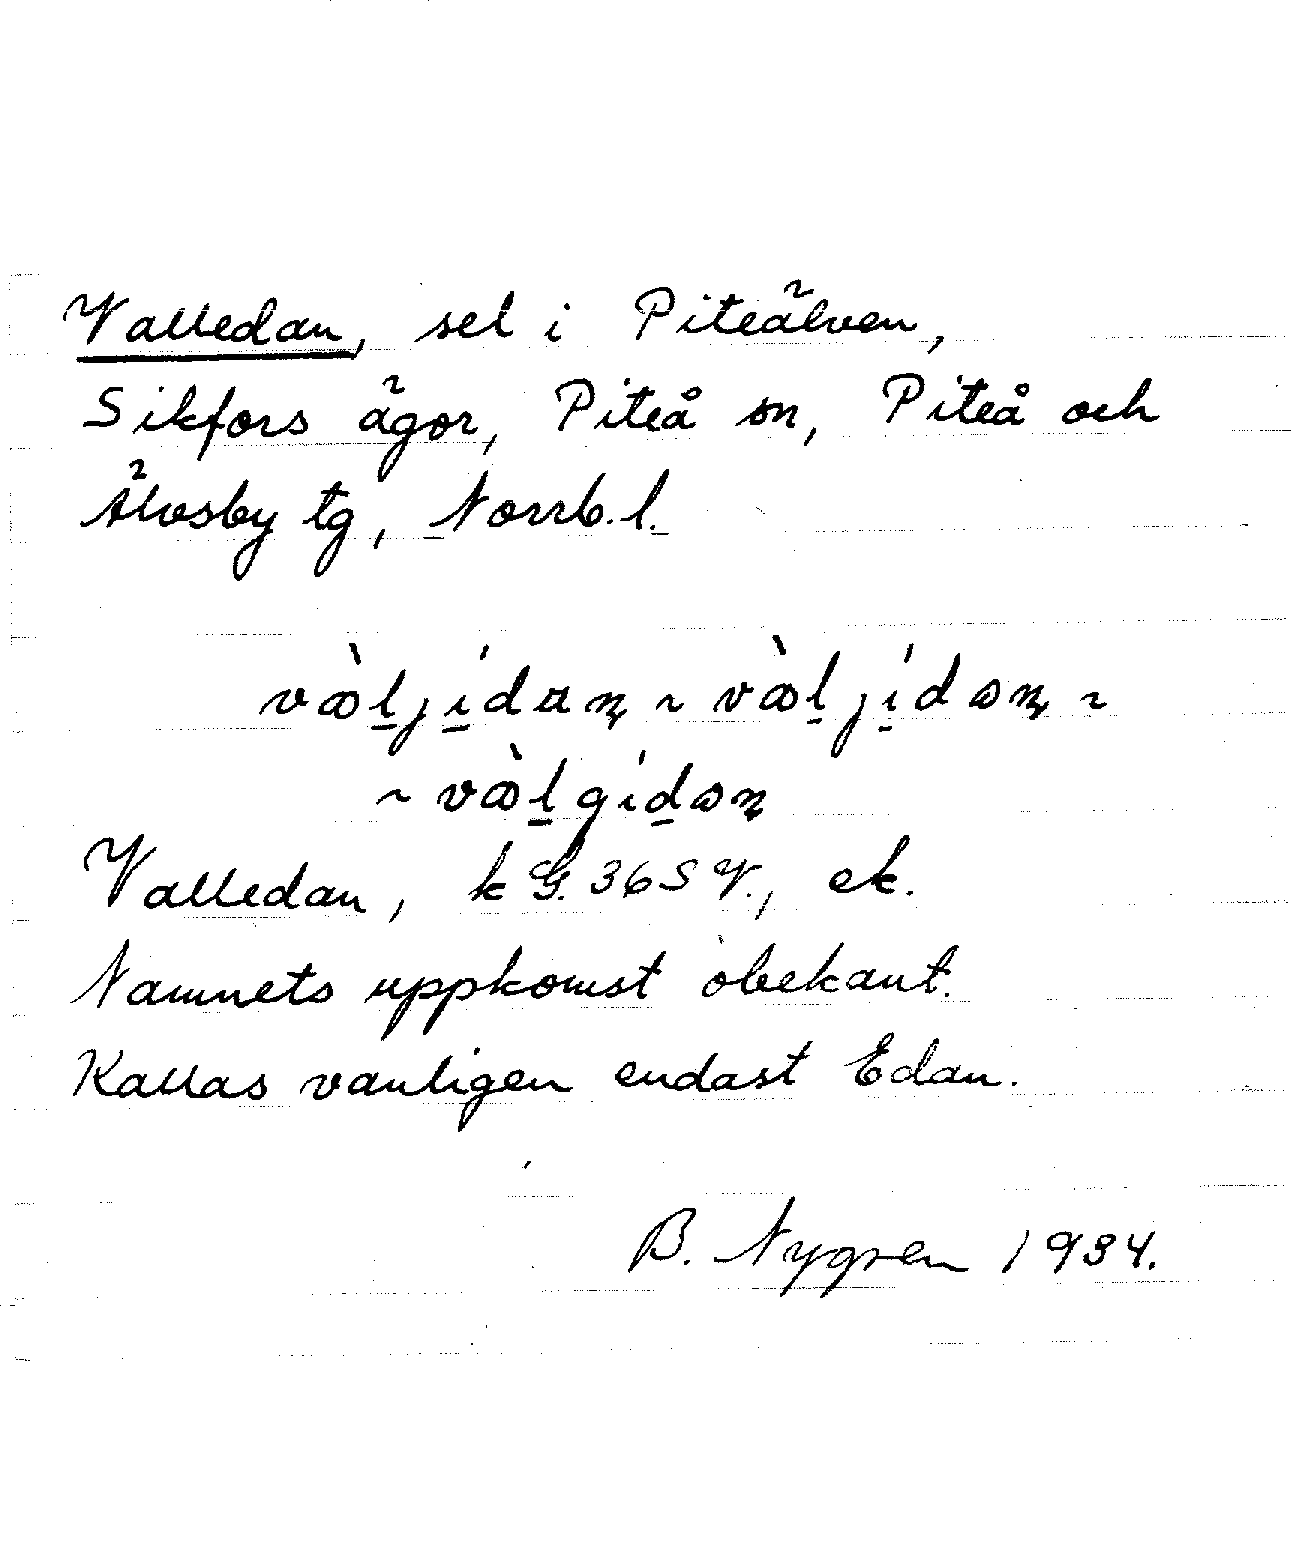 Valledan, sel i Piteälven,
Sikfors ägor, Piteå sn, Piteå och
Älvsby tg, Norrb. l.
Valledan, k G. 36 S V., ek.
Namnets uppkomst obekant.
Kallas vanligen endast Edan.
B. Nygren 1934.